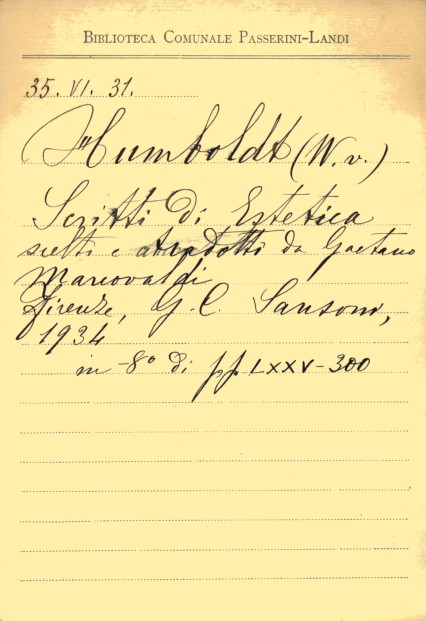 BIBLIOTECA COMUNALE PASSERINI-LANDI
35. VI. 31.
Humboldt (W. v.)
Scritti di Estetica
scelti e tradotti da Gaetano
Marcovaldi
Firenze, G. C. Sansoni,
1934
in -8º di pp. LXXV-300